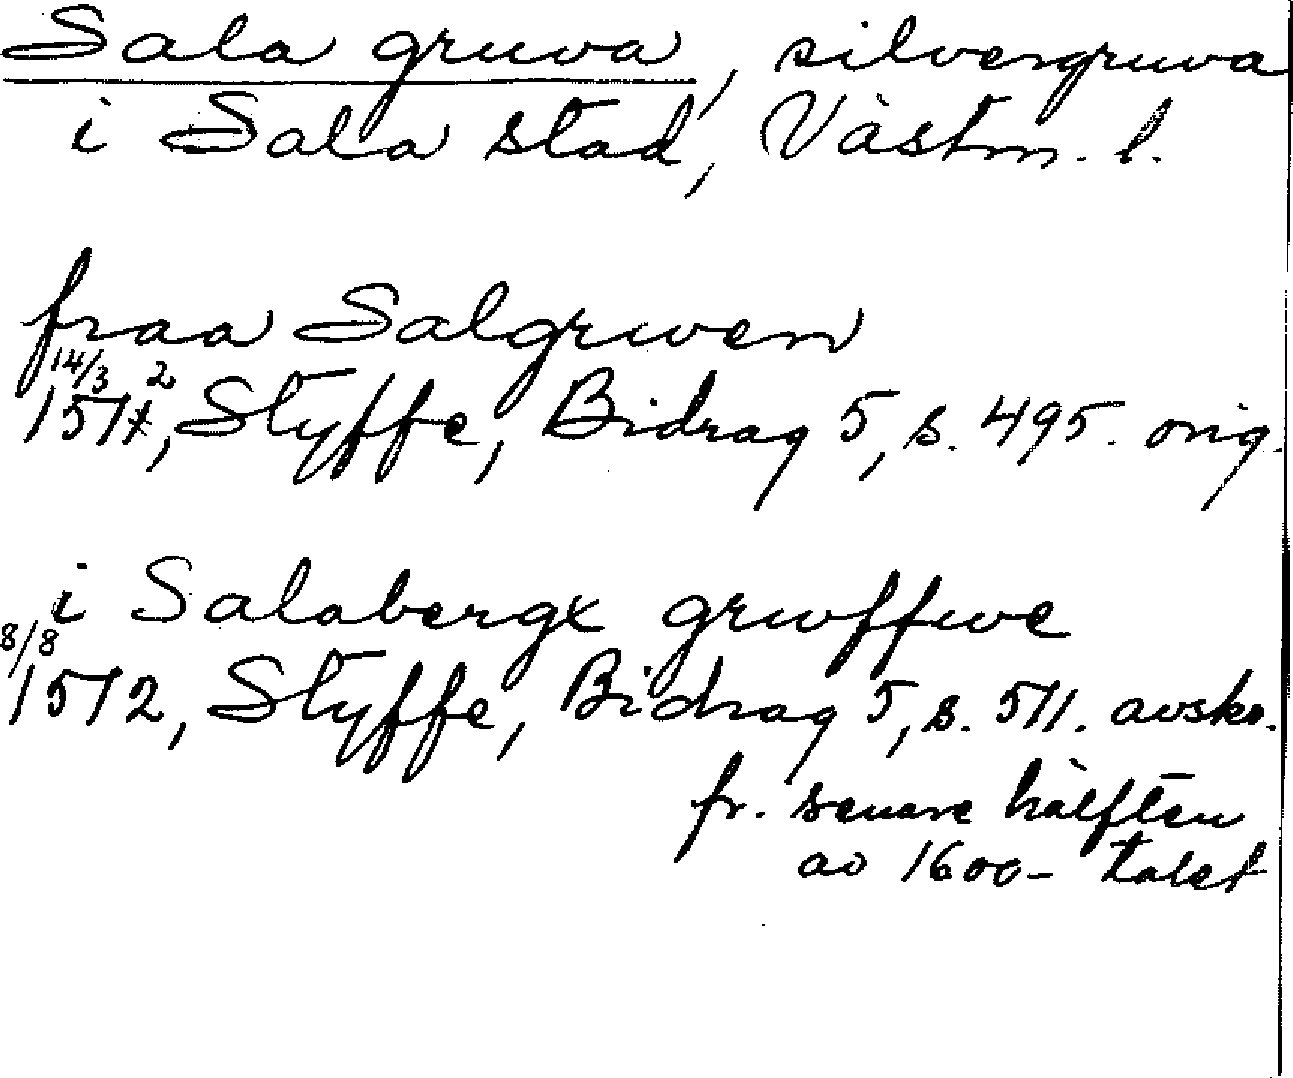 Sala gruva, silvergruva
i Sala stad, Västm. l.
fraa Salgruven
14/3 1512, Styffe, Bidrag 5, s. 495. orig.
i Salabergx gruffwe
8/8 1512, Styffe, Bidrag 5, s. 511. avskr.
fr. senare hälften
av 1600-talet